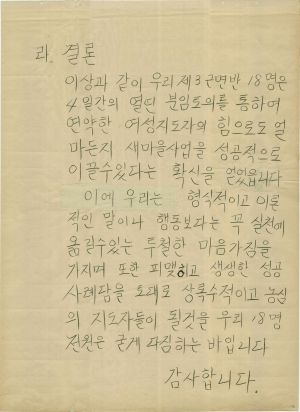 라. 결론
이상과 같이 우리 제3분반 18명은
4일간의 열띤 분임토의를 통하여
연약한 여성지도자의 힘으로도 얼
마든지 새마을사업을 성공적으로
이끌수있다는 확신을 얻었읍니다
이에 우리는 형식적이고 이론
적인 말이나 행동보다는 꼭 실천에
옮길수있는 투철한 마음가짐을
가지며 또한 피맺히고 생생한 성공
사례담을 토대로 상록수적이고 농심
의 지도자들이 될것을 우리 18명
전원은 굳게 다짐하는 바입니다
감사합니다.